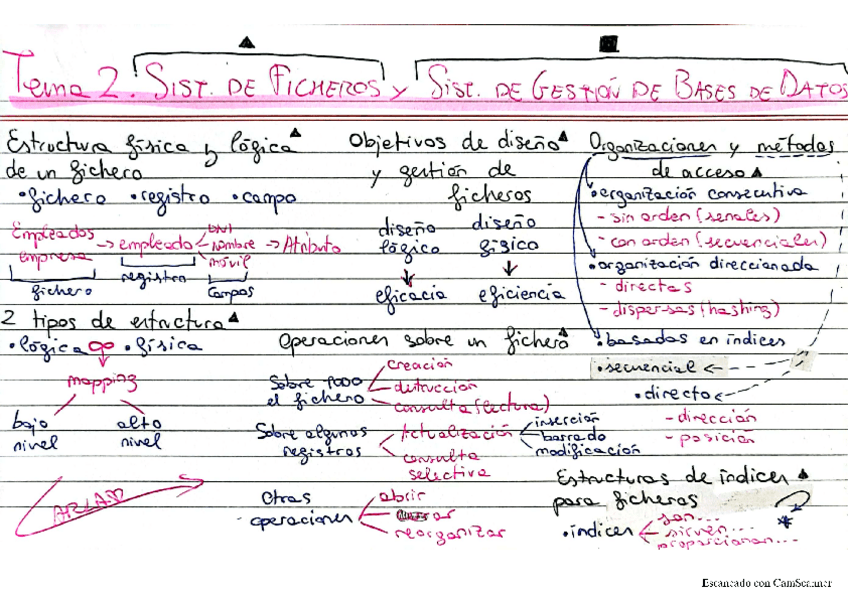 Tema 2. SIST. DE FICHEROS y SIST. DE GESTIÓN DE BASES DE DATOS
Estructura física y lógica
de un fichero
•fichero •registro •campo
Empleados
empresa
→ empleado
DNI
nombre
móvil
→ Atributo
fichero
registro
campos
2 tipos de estructura
•lógica ∞ •física
mapping
bajo
nivel
alto
nivel
Objetivos de diseño
y gestión de
ficheros
diseño
lógico
diseño
físico
eficacia
eficiencia
Operaciones sobre un fichero
Sobre TODO
el fichero
creación
destrucción
consulta (lectura)
Sobre algunos
registros
Actualización
inserción
borrado
modificación
consulta
selectiva
Otras
operaciones
abrir
reorganizar
Organizaciones y métodos
de acceso
•organización consecutiva
- sin orden (seriales)
- con orden (secuenciales)
•organización direccionada
- directas
- dispersas (hashing)
•basados en índices
•secuencial
•directo
- dirección
- posición
Estructuras de índices
para ficheros
•índices
son...
sirven...
proporcionan...
*
Escaneado con CamScanner